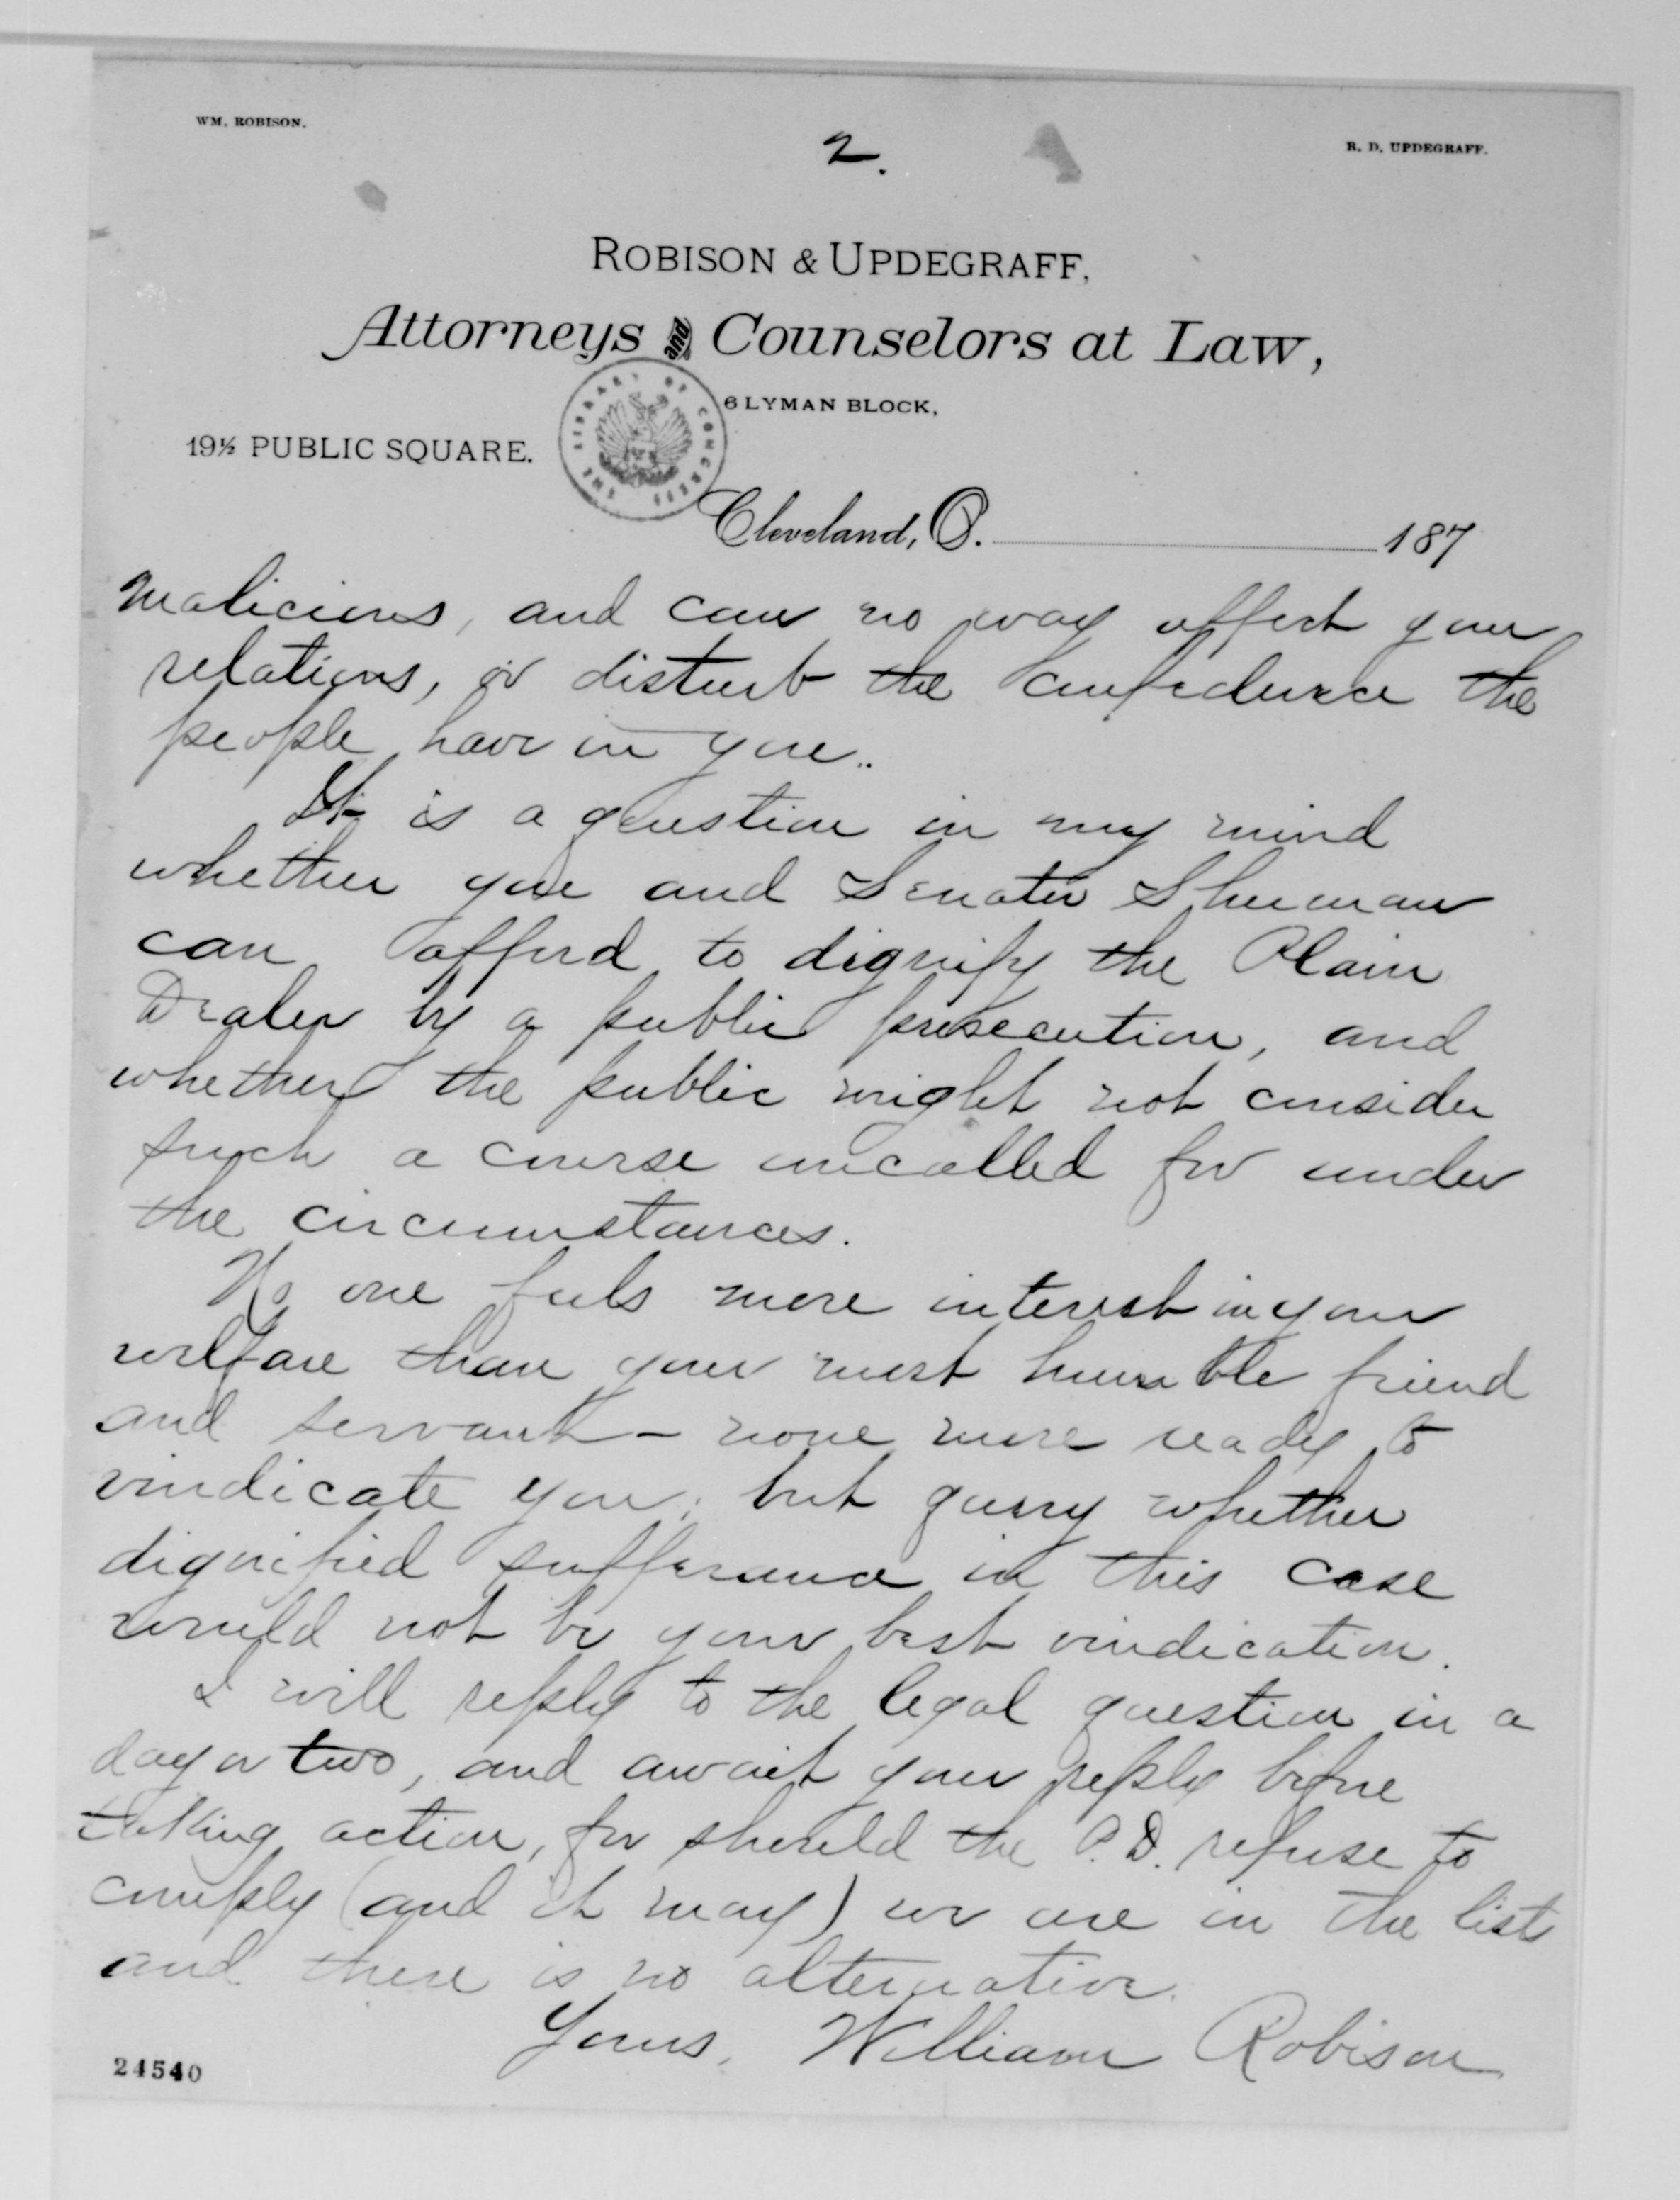 WM. ROBISON.
2.
R. D. UPDEGRAFF.
ROBISON & UPDEGRAFF,
Attorneys and Counselors at Law,
6 LYMAN BLOCK,
19½ PUBLIC SQUARE.
THE LIBRARY OF CONGRESS
Cleveland, O. 187
malicious, and can no way affect your
relations, or disturb the confidence the
people have in you.
It is a question in my mind
whether you and Senator Sherman
can afford to dignify the Plain
Dealer by a public prosecution, and
whether the public might not consider
such a course uncalled for under
the circumstances.
No one feels more interest in your
welfare than your most humble friend
and servant – none more ready to
vindicate you; but query whether
dignified sufferance in this case
would not be your best vindication.
I will reply to the legal question in a
day or two, and await your reply before
taking action, for should the P.D. refuse to
comply (and it may) we are in the lists
and there is no alternative.
Yours, William Robison
24540